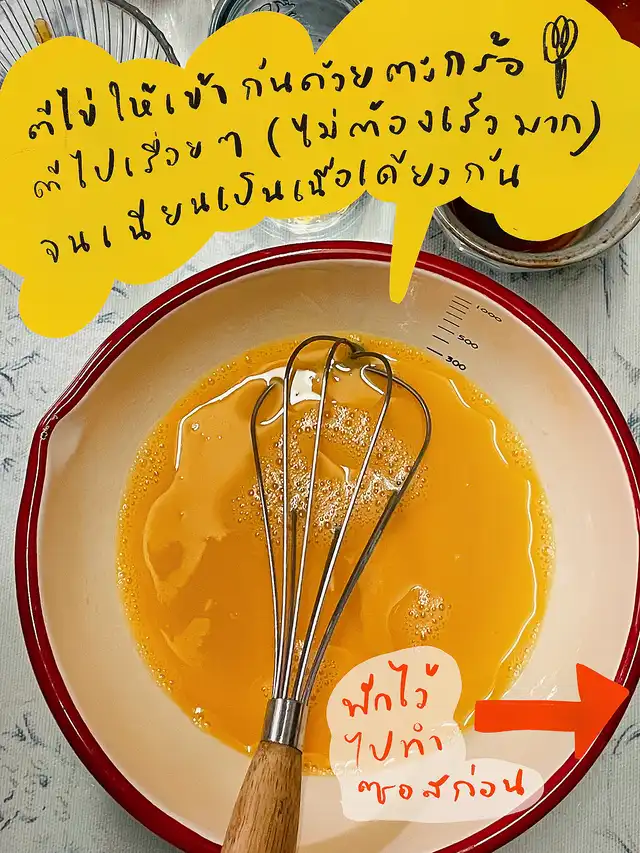 ตีไข่ให้เข้ากันด้วยตะกร้อ
ตีไปเรื่อยๆ (ไม่ต้องเร็วมาก)
จนเนียนเป็นเนื้อเดียวกัน
1000
500
300
พักไว้
ไปทำ
ซอสก่อน